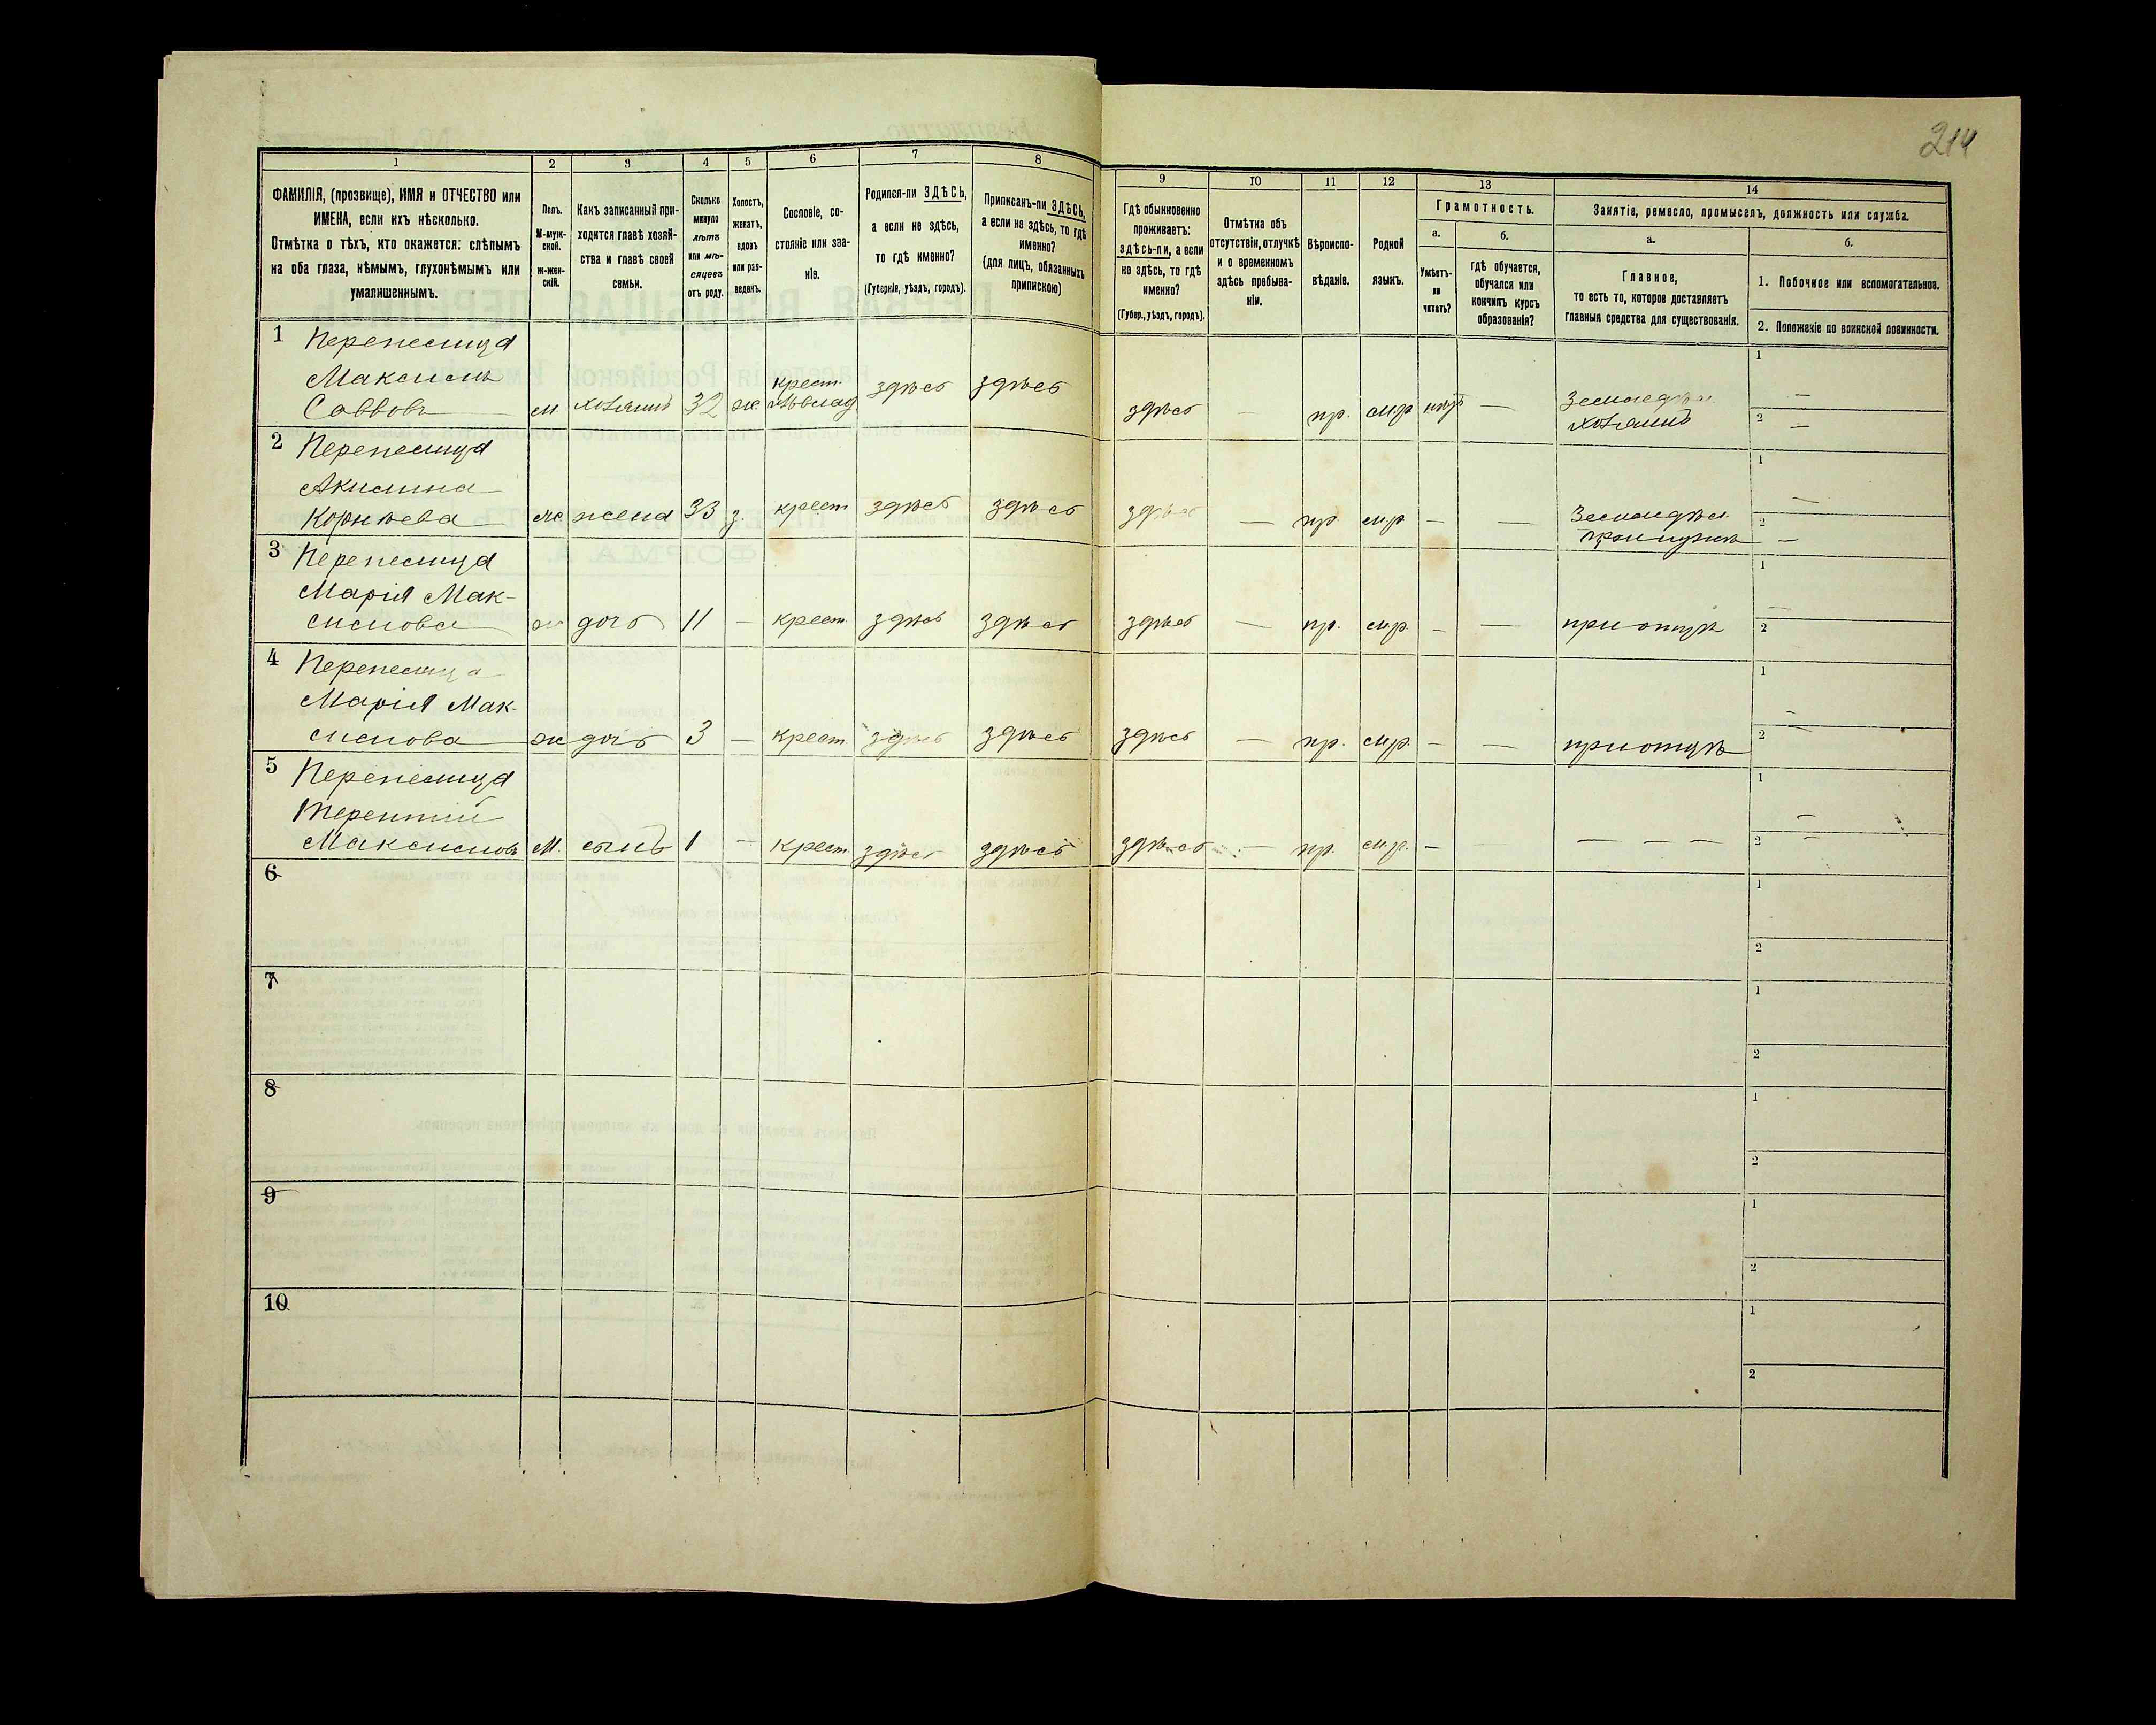 214
1 2 3 4 5 6 7 8 9 10 11 12 13 14
ФАМИЛІЯ, (прозвище), ИМЯ и ОТЧЕСТВО или
ИМЕНА, если ихъ нѣсколько.
Отмѣтка о тѣхъ, кто окажется: слѣпымъ
на оба глаза, нѣмымъ, глухонѣмымъ или
умалишеннымъ.
Полъ.
М-муж-
ской.
ж-жен-
скій.
Какъ записанный при-
ходится главѣ хозяй-
ства и главѣ своей
семьи.
Сколько
минуло
лѣтъ
или мѣ-
сяцевъ
отъ роду.
Холостъ,
женатъ,
вдовъ
или раз-
веденъ.
Сословіе, со-
стояніе или зва-
ніе.
Родился-ли ЗДѢСЬ,
а если не здѣсь,
то гдѣ именно?
(Губернія, уѣздъ, городъ).
Приписанъ-ли ЗДѢСЬ,
а если не здѣсь, то гдѣ
именно?
(для лицъ, обязанныхъ
припискою)
Гдѣ обыкновенно
проживаетъ:
здѣсь-ли, а если
не здѣсь, то гдѣ
именно?
(Губер., уѣздъ, городъ).
Отмѣтка объ
отсутствіи, отлучкѣ
и о временномъ
здѣсь пребыва-
ніи.
Вѣроиспо-
вѣданіе.
Родной
языкъ.
Грамотность.
а.
Умѣетъ-
ли
читать?
б.
гдѣ обучается,
обучался или
кончилъ курсъ
образованія?
Занятіе, ремесло, промыселъ, должность или служба.
а.
Главное,
то есть то, которое доставляетъ
главныя средства для существованія.
б.
1. Побочное или вспомогательное.
2. Положеніе по воинской повинности.
1 Перепелица
Максимъ
Саввовъ м хозяинъ 32 ж крест. здѣсь здѣсь здѣсь — пр. мр нѣтъ — Земледѣл
хозяинъ
1 —
2 —
2 Перепелица
Акилина
Корнѣева ж жена 33 з. крест здѣсь здѣсь здѣсь — пр. мр — — Земледѣл
при мужѣ
1 —
2 —
3 Перепелица
Марія Мак-
симова ж дочь 11 — крест. здѣсь здѣсь здѣсь — пр. мр. — — при отцѣ
1 —
2
4 Перепелица
Марія Мак-
симова ж дочь 3 — крест. здѣсь здѣсь здѣсь — пр. мр. — — при отцѣ
1 —
2
5 Перепелица
Терентій
Максимовъ М. сынъ 1 — крест. здѣсь здѣсь здѣсь — пр. мр. — — — — —
1 —
2 —
6 1
2
7 1
2
8 1
2
9 1
2
10 1
2